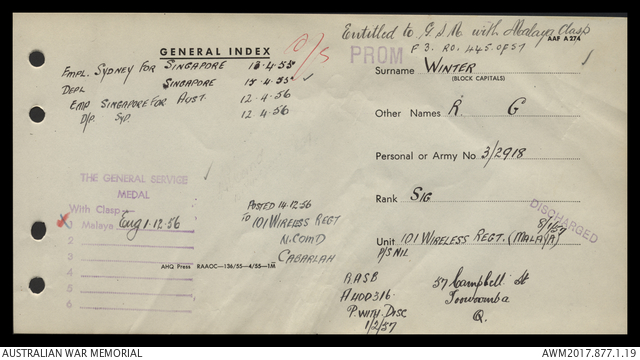 Entitled to G.S.M. with Malaya Clasp
AAF A 274
F3. RO. 445 OF 57
GENERAL INDEX
O/S
PROM
EMPL. SYDNEY FOR SINGAPORE 13.4.55
DEPL SINGAPORE 15.4.55 ✓
EMP SINGAPORE FOR AUST. 12.4.56
D/P. SYD. 12.4.56
Surname WINTER
(BLOCK CAPITALS)
Other Names R. G
Personal or Army No 3/2918
Rank SIG
DISCHARGED
8/1/57
Unit 101 WIRELESS REGT. (MALAYA)
P/S NIL
THE GENERAL SERVICE
MEDAL
With Clasp
1 Malaya Eng 1.12.56
2
3
4
5
6
POSTED 14.12.56
TO 101 WIRELESS REGT
N. COM'D
CABARLAH
AHQ Press RAAOC—136/55—4/55—1M
R.A.S.B
A400316.
P. WITH DISC
1/2/57
37 Campbell St
Toowoomba
Q.
AUSTRALIAN WAR MEMORIAL
AWM2017.877.1.19